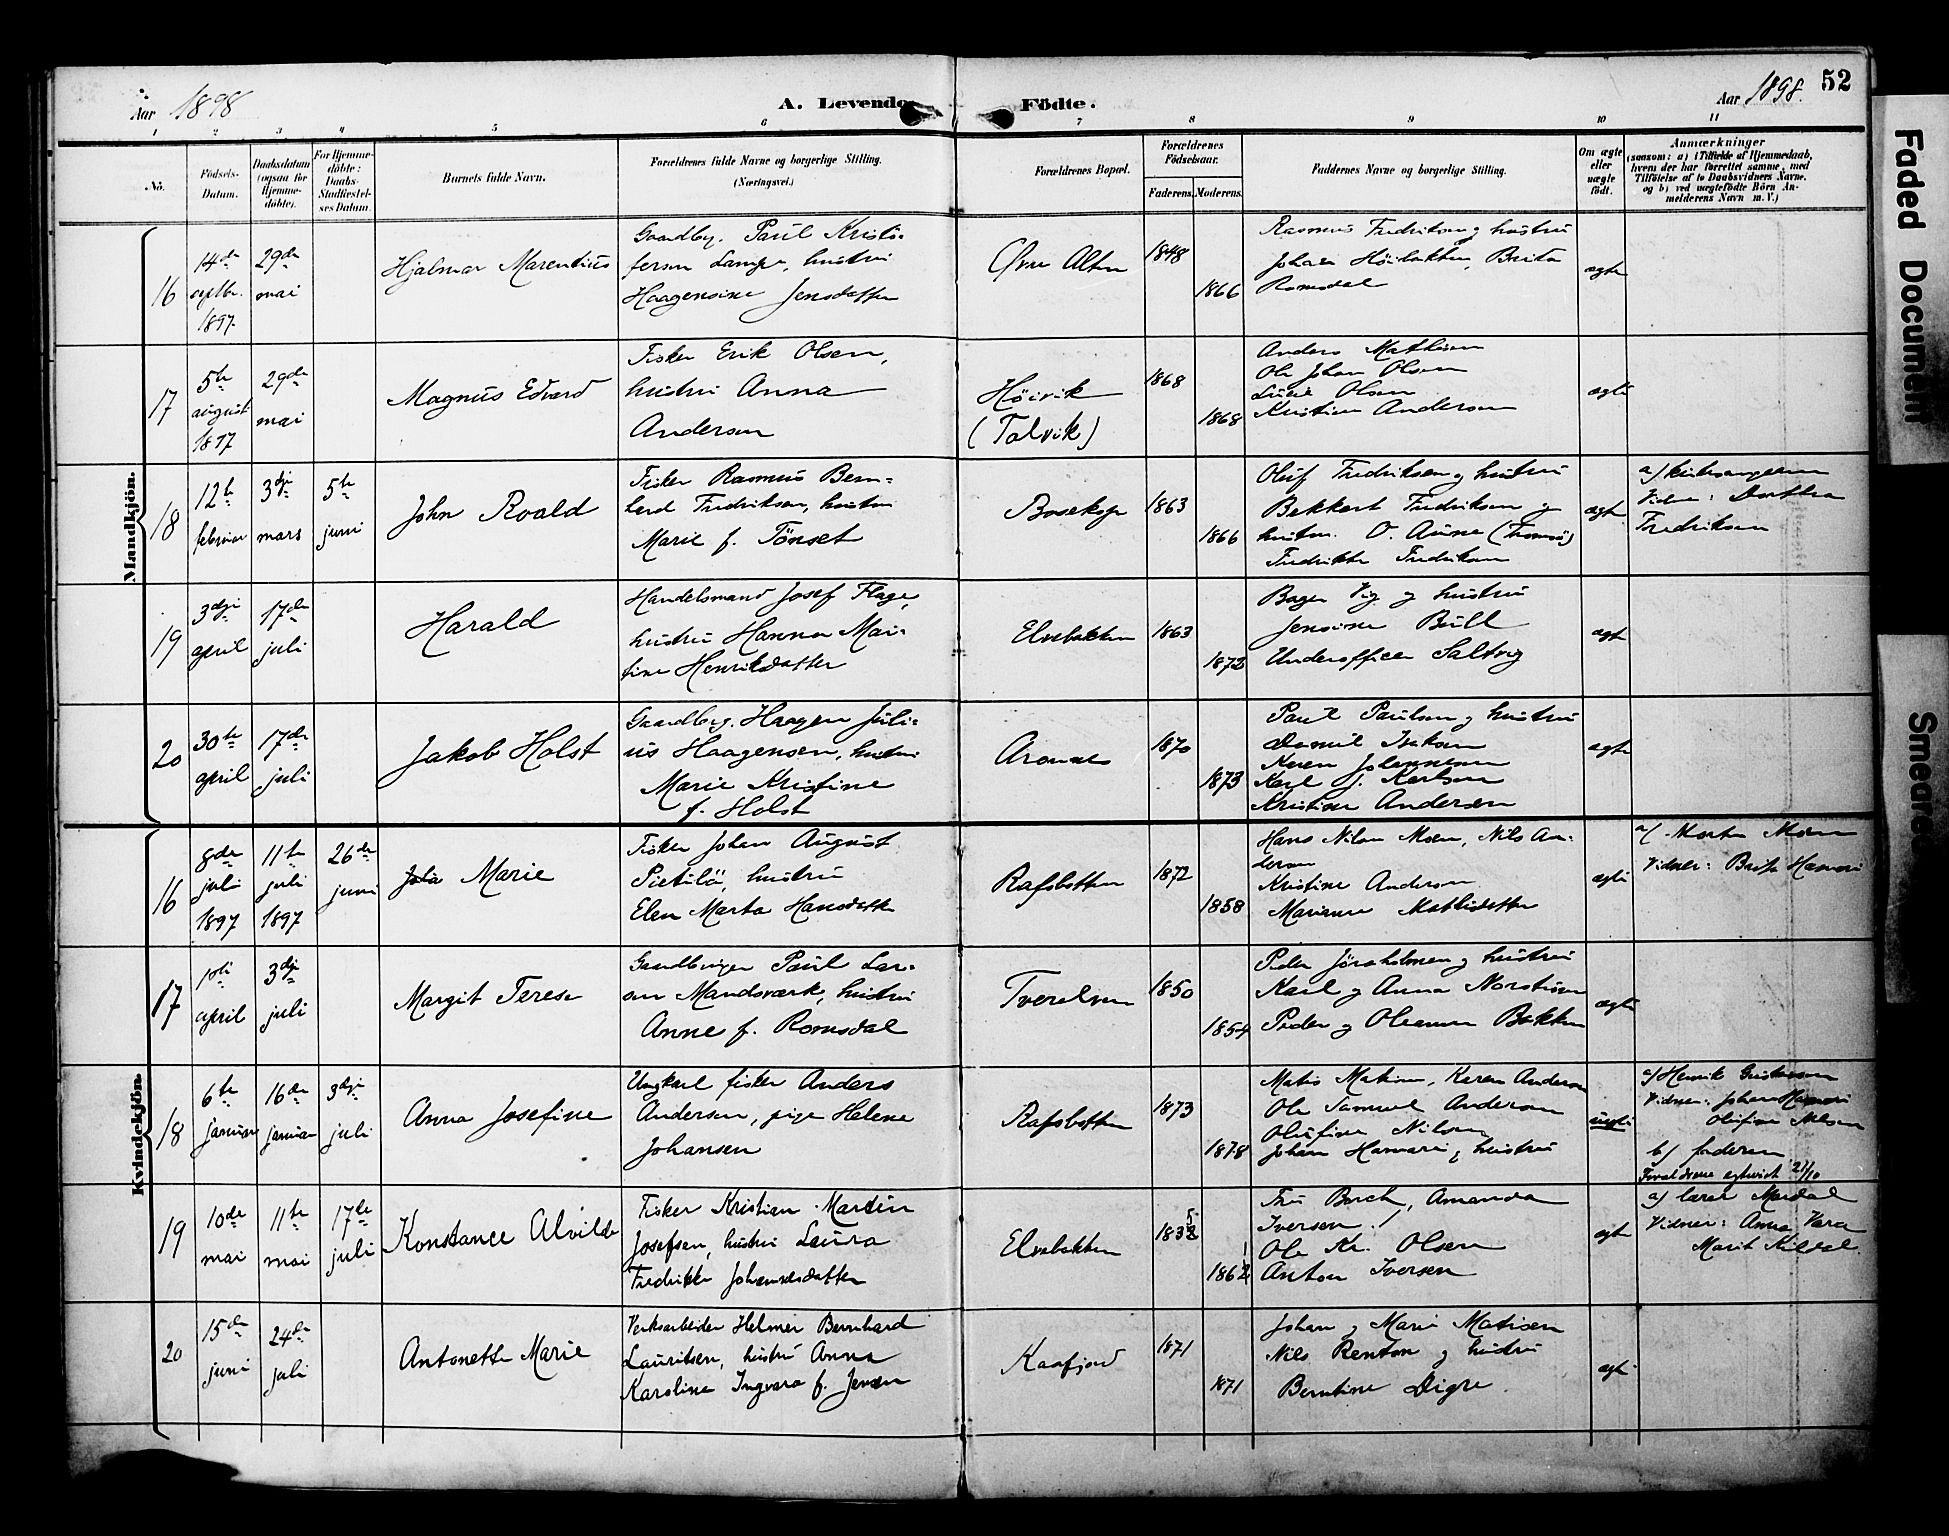 Aar 1898
A. Levende Födte.
Aar 1898.
52
1 2 3 4 5 6 7 8 9 10 11
No.
Födsels-
Datum.
Daabsdatum
(ogsaa for
Hjemme-
döbte).
For Hjemme-
döbte:
Daabs-
Stadfæstel-
ses Datum.
Barnets fulde Navn.
Forældrenes fulde Navne og borgerlige Stilling.
(Næringsvei.)
Forældrenes Bopæl.
Forældrenes
Födselsaar.
Faderens. Moderens.
Faddernes Navne og borgerlige Stilling.
Om ægte
eller
uægte
födt.
Anmærkninger
(saasom: a) i Tilfælde af Hjemmedaab,
hvem der har forrettet samme, med
Tilföielse af to Daabsvidners Navne,
og b) ved uægtefödte Börn An-
melderens Navn m. V.)
Mandkjön.
16
14de
septbr.
1897.
29de
mai
Hjalmar Marentius
Gaardbr. Paul Kristo-
fersen Lampe, hustru
Haagensine Jensdatter
Øvre Alten
1848
1866
Rasmus Fredriksen og hustru
Johan Höibakken, Berita
Romsdal
ægte
17
5te
august
1897
29de
mai
Magnus Edvard
Fisker Erik Olsen,
hustru Anna
Andersen
Höivik
(Talvik)
1868
1868
Anders Mathisen
Ole Johan Olsen
Lucie Olsen
Kristine Andersen
ægte
18
12te
februar
3dje
mars
5te
juni
John Roald
Fisker Rasmus Bern-
herd Fredriksen, hustru
Marie f. Tönset
Bosekop
1863
1866
Oluf Fredriksen og hustru
Bekkert Fredriksen og
hustru. O. Aune (Tromsö)
Fredrikke Fredriksen
ægte
a) kirkesangeren
Vidner: Dorthea
Fredriksen
19
3dje
april
17de
juli
Harald
Handelsmand Josef Flage,
hustru Hanna Mar-
tine Henriksdatter
Elvebakken
1863
1872
Bager Vig og hustru
Jensine Bull
Underofficer Saltvig
ægte
20
30te
april
17de
juli
Jakob Holst
Gaardbrg. Haagen Juli-
us Haagensen, hustru
Marie Kristine
f. Holst
Aronnes
1870
1873
Paul Paulsen og hustru
Daniel Isaksen
Karen Johannesen
Karl J. Karlsen
Kristine Andersen
ægte
Kvindekjön.
16
8de
juli
1897
11te
juli
1897
26de
juni
Marie
Fisker Johan August
Pietilä, hustru
Elen Marta Hansdatter
Rafsbotten
1872
1858
Hans Nilsen Moen, Nils An-
dersen
Kristine Andersen
Marianne Mathisdatter
ægte
a) Morten Moen
Vidner: Brita Hamari
17
1ste
april
3dje
juli
Margit Terese
Gaardbruger Paul Lar-
sen Mandsværk, hustru
Anne f. Romsdal
Tverelven
1850
1854
Peder Jöraholmen og hustru
Karl og Anna Norström
Peder og Oleanna Bakken
ægte
18
6te
januar
16de
januar
3dje
juli
Anna Josefine
Ungkarl fisker Anders
Andersen, pige Helene
Johansen
Rafsbotten
1873
1878
Matis Matisen, Karen Andersen
Ole Samuel Andersen
Olufine Nilsen
Johan Hamari og hustru
uægte
a) Henrik Gustavsen
Vidner: Johan Hamari
Olufine Nilsen
b) faderen
Forældrene egteviet 21/10
19
10de
mai
11te
mai
17de
juli
Konstance Alvilde
Fisker Kristian Martin
Josefsen, hustru Laura
Fredrikke Johannesdatter
Elvebakken
1835
1861
Fru Borch, Amanda
Iversen
Ole Kr. Olsen
Anton Iversen
ægte
a) lærer Mørdal
Vidner: Anna Vara
Marit Kildal.
20
15de
juni
24de
juli
Antonette Marie
Verksarbeider Helmer Bernhard
Lauritsen, hustru Anna
Karoline Ingvara f. Jensen
Kaafjord
1871
1871
Johan og Marie Matisen
Nils Renton og hustru
Berntine Digre.
ægte
Faded Document
Smeared